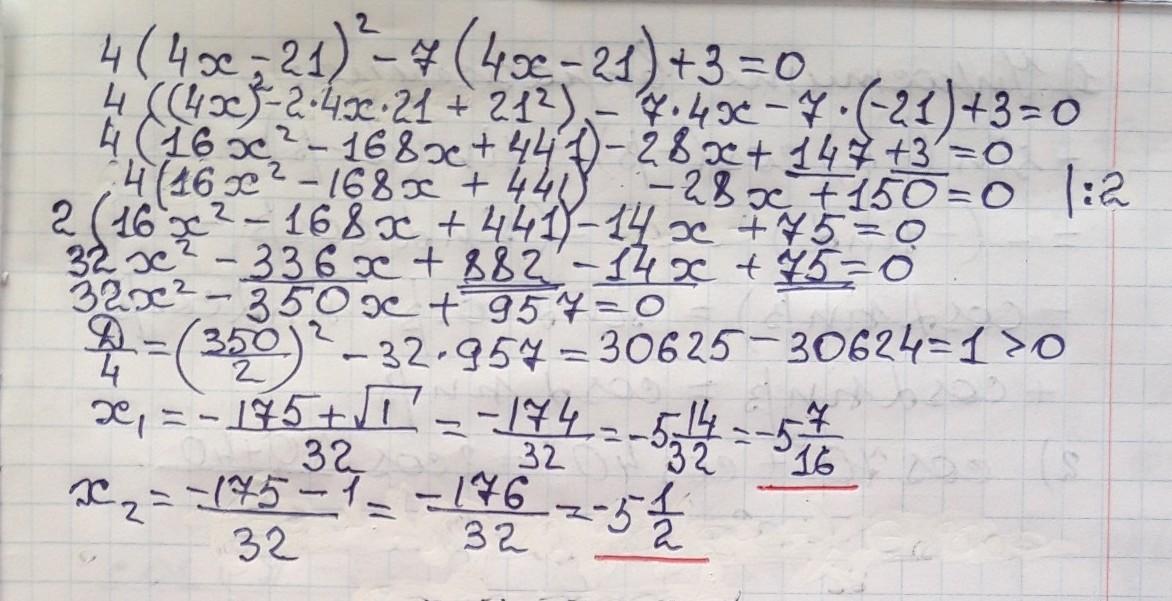 4(4x-21)² - 7(4x-21)+3=0
4((4x)²-2·4x·21+21²) - 7·4x-7·(-21)+3=0
4(16x²-168x+441)-28x+147+3=0
4(16x²-168x+441) -28x+150=0 |:2
2(16x²-168x+441)-14x+75=0
32x²-336x+882-14x+75=0
32x²-350x+957=0
D/4=(350/2)²-32·957=30625-30624=1>0
x₁=(-175+√1)/32=-174/32=-5 14/32=-5 7/16
x₂=(-175-1)/32=-176/32=-5 1/2